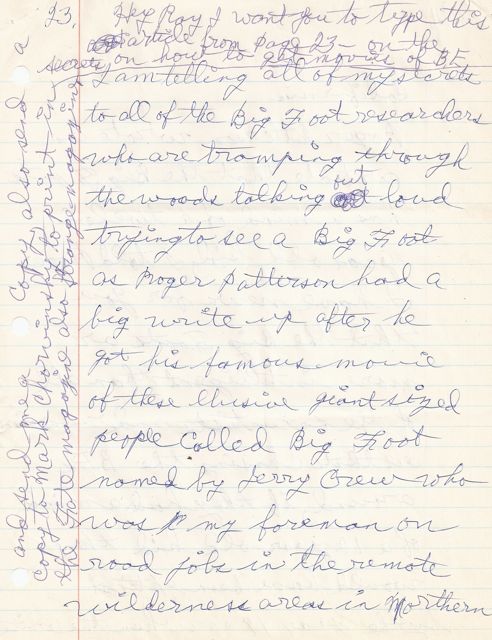 23.
Hey Ray I want you to type this
article from page 23 - on the
secrets on how to get movies of BF.
I am telling all of my secrets
to all of the Big Foot researchers
who are tramping through
the woods talking out loud
trying to see a Big Foot
as Roger Patterson had a
big write up after he
got his famous movie
of these elusive giant sized
people called Big Foot
named by Jerry Crew who
was my foreman on
road jobs in the remote
wilderness areas in Northern
and send me a copy, also send a
copy to Mark Chorvinsky to print in
the Fate magazine also Strange magazine